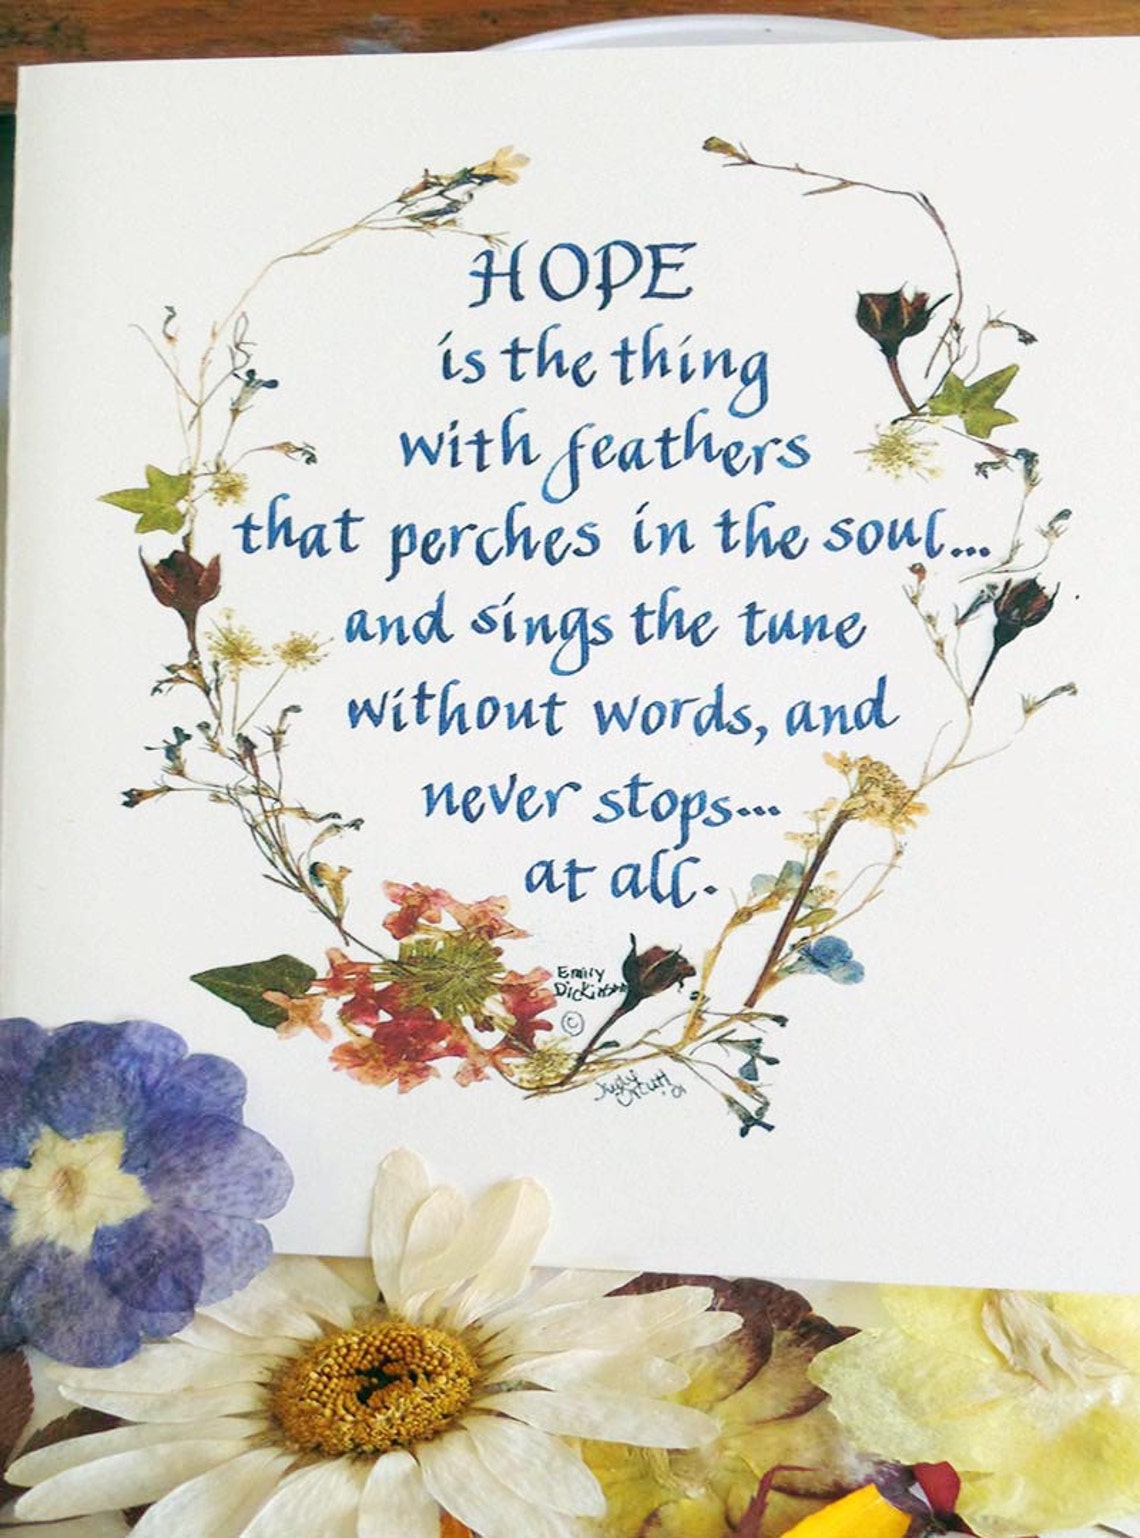 HOPE
is the thing
with feathers
that perches in the soul...
and sings the tune
without words, and
never stops...
at all.
Emily
Dickinson
©
Judy